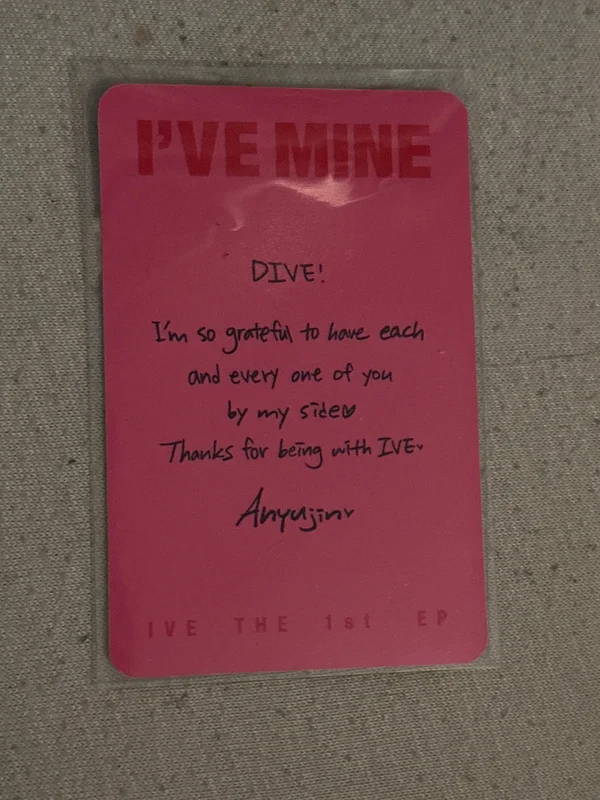 I'VE MINE
DIVE!
I'm so grateful to have each
and every one of you
by my side♥
Thanks for being with IVE♥
Anyujin♥
IVE THE 1st EP